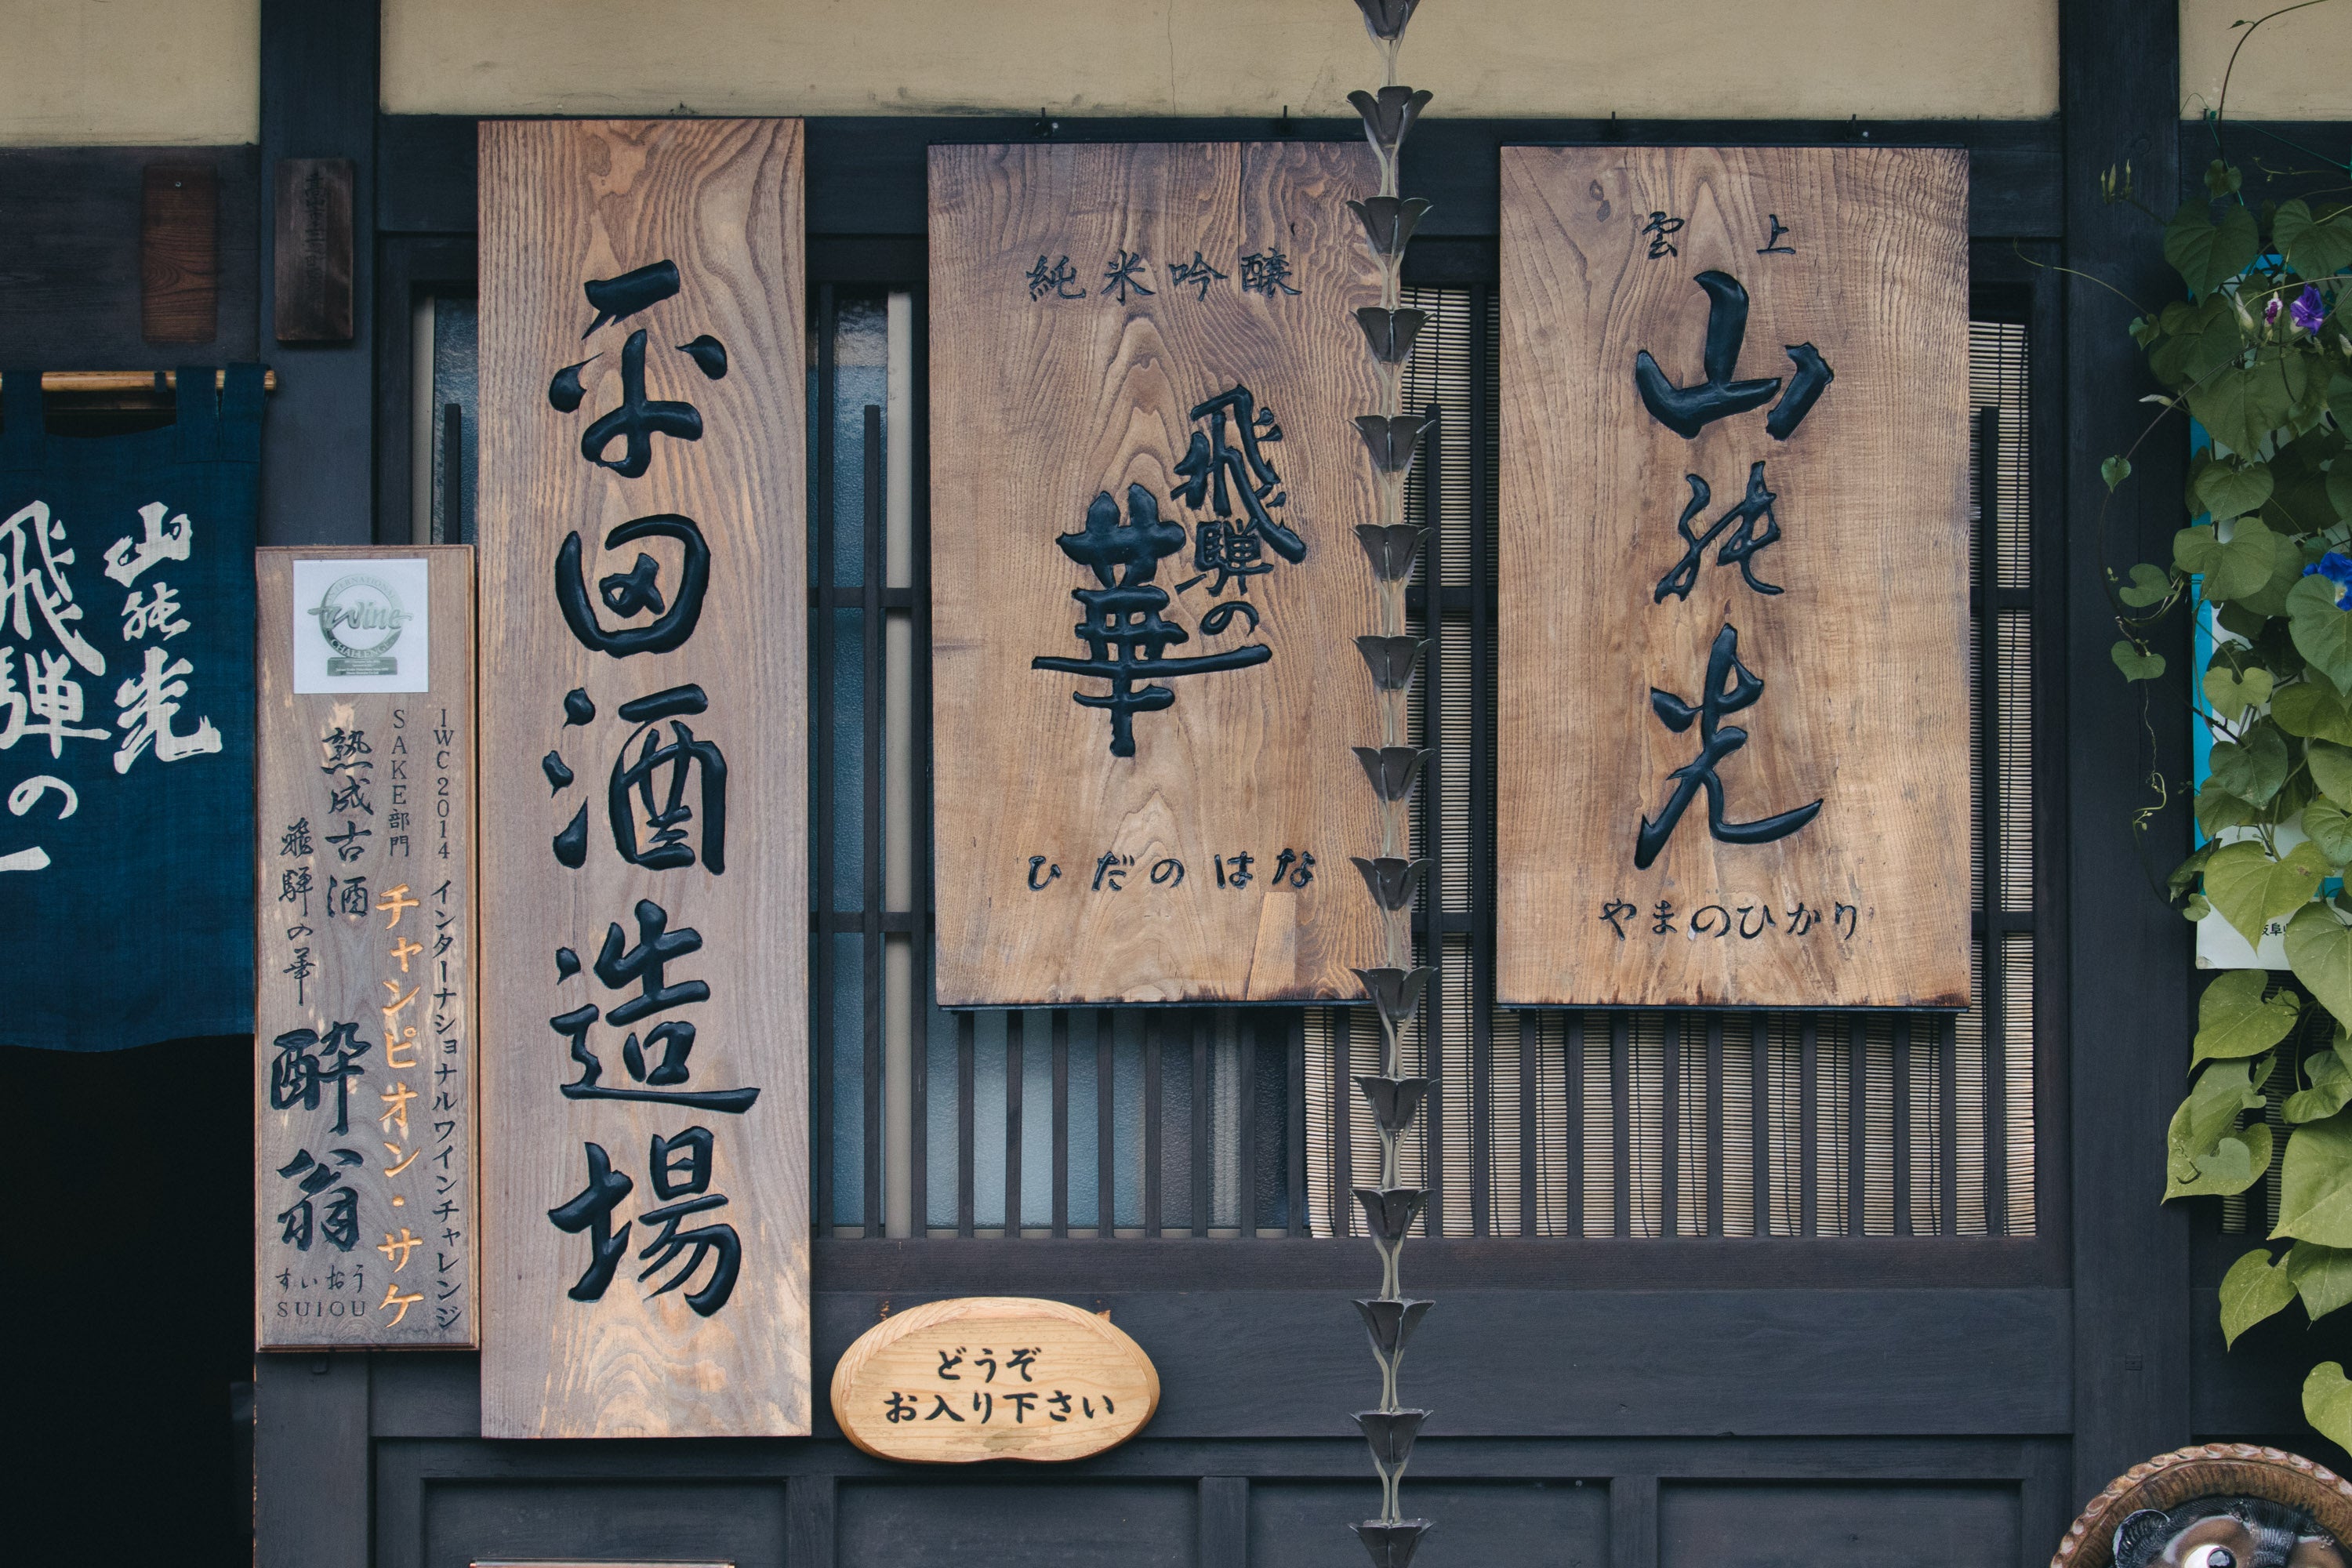 山能光
飛騨の
IWC2014 インターナショナルワインチャレンジ
SAKE部門 チャンピオン・サケ
熟成古酒
飛騨の華
酔翁
すいおう
SUIOU
Wine
CHALLENGE
平田酒造場
純米吟醸
飛騨の
華
ひだのはな
雲上
山能光
やまのひかり
どうぞ
お入り下さい